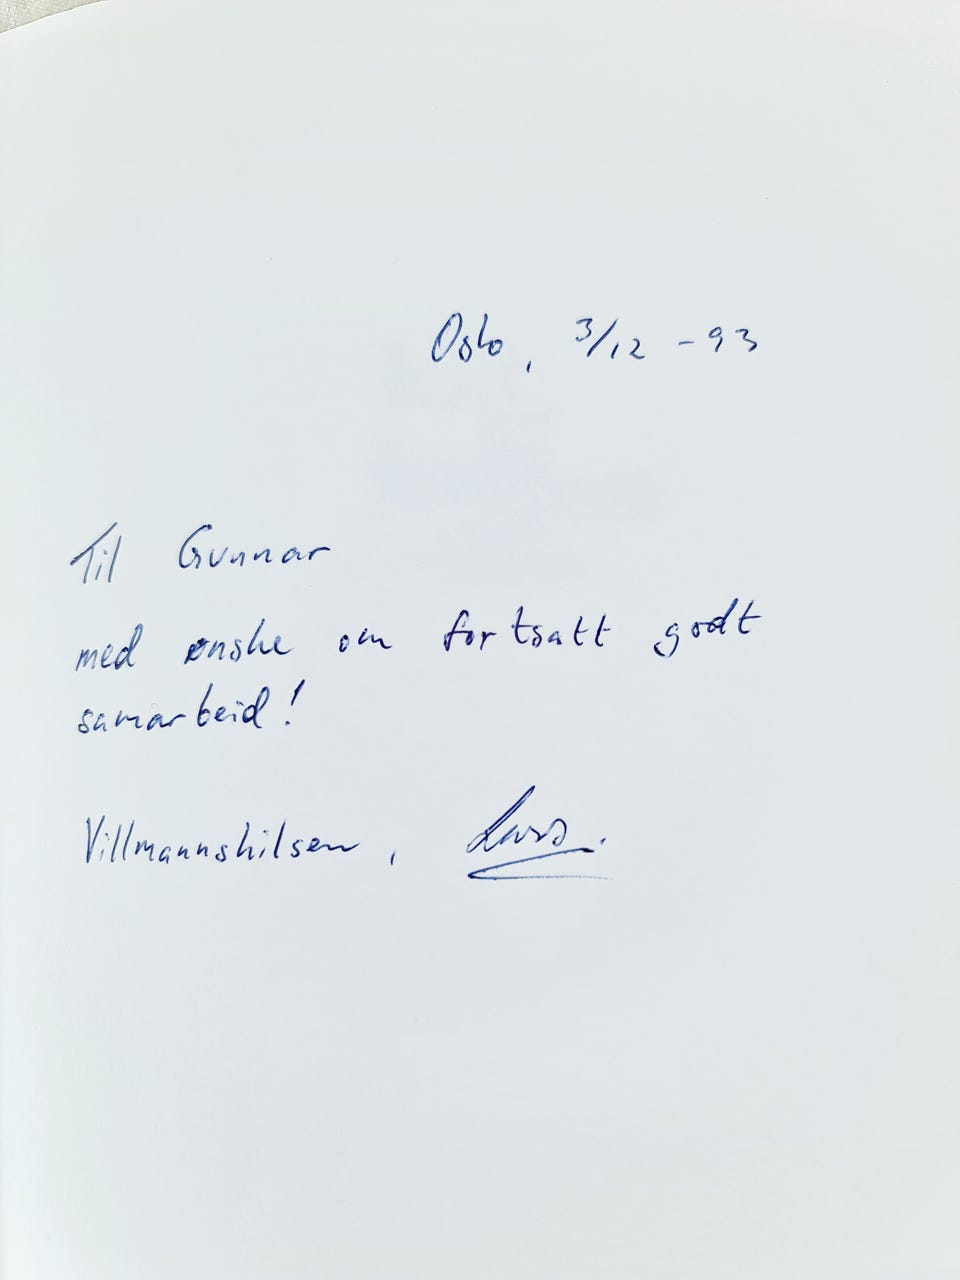 Oslo, 3/12 -93
Til Gunnar
med ønske om fortsatt godt
samarbeid!
Villmannshilsen, Lars.